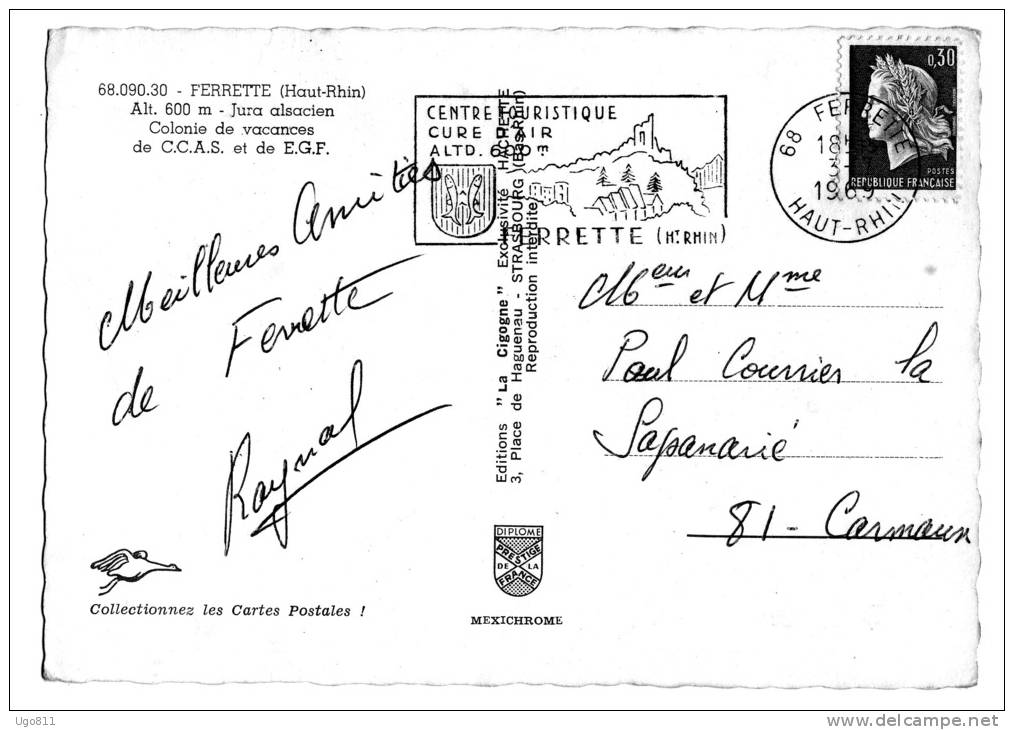 68.090.30 - FERRETTE (Haut-Rhin)
Alt. 600 m - Jura alsacien
Colonie de vacances
de C.C.A.S. et de E.G.F.
CENTRE TOURISTIQUE
CURE D'AIR
ALTD. 600 m
FERRETTE (HT RHIN)
68 FERRETTE
18H
3-
1969
HAUT-RHIN
0,30
POSTES
REPUBLIQUE FRANÇAISE
Meilleures Amitiés
de Ferrette
Raynal
Editions "La Cigogne" Exclusivité HACHETTE
3, Place de Haguenau - STRASBOURG (Bas-Rhin)
Reproduction interdite
Meur et Mme
Paul Courrier la
Sapanarié
81 - Carmaux
DIPLOME
PRESTIGE
DE LA
FRANCE
MEXICHROME
Collectionnez les Cartes Postales !
Ugo811
delcampe.net